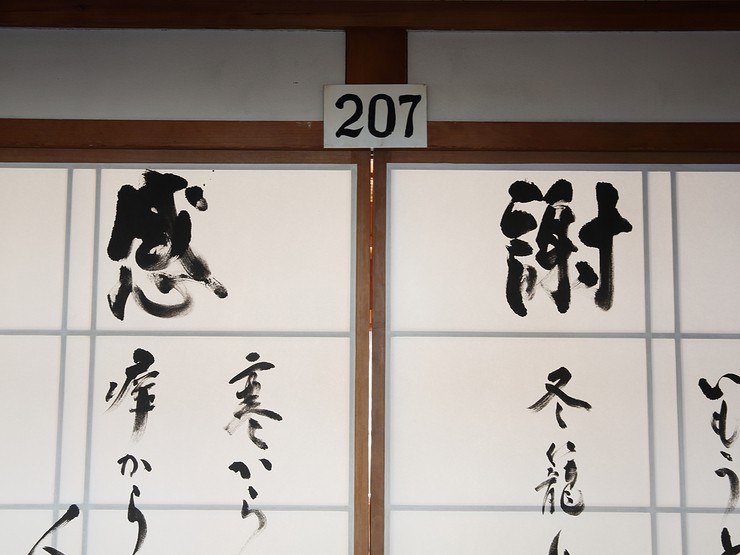 207
感
謝
寒から
痒から
冬籠
いもう